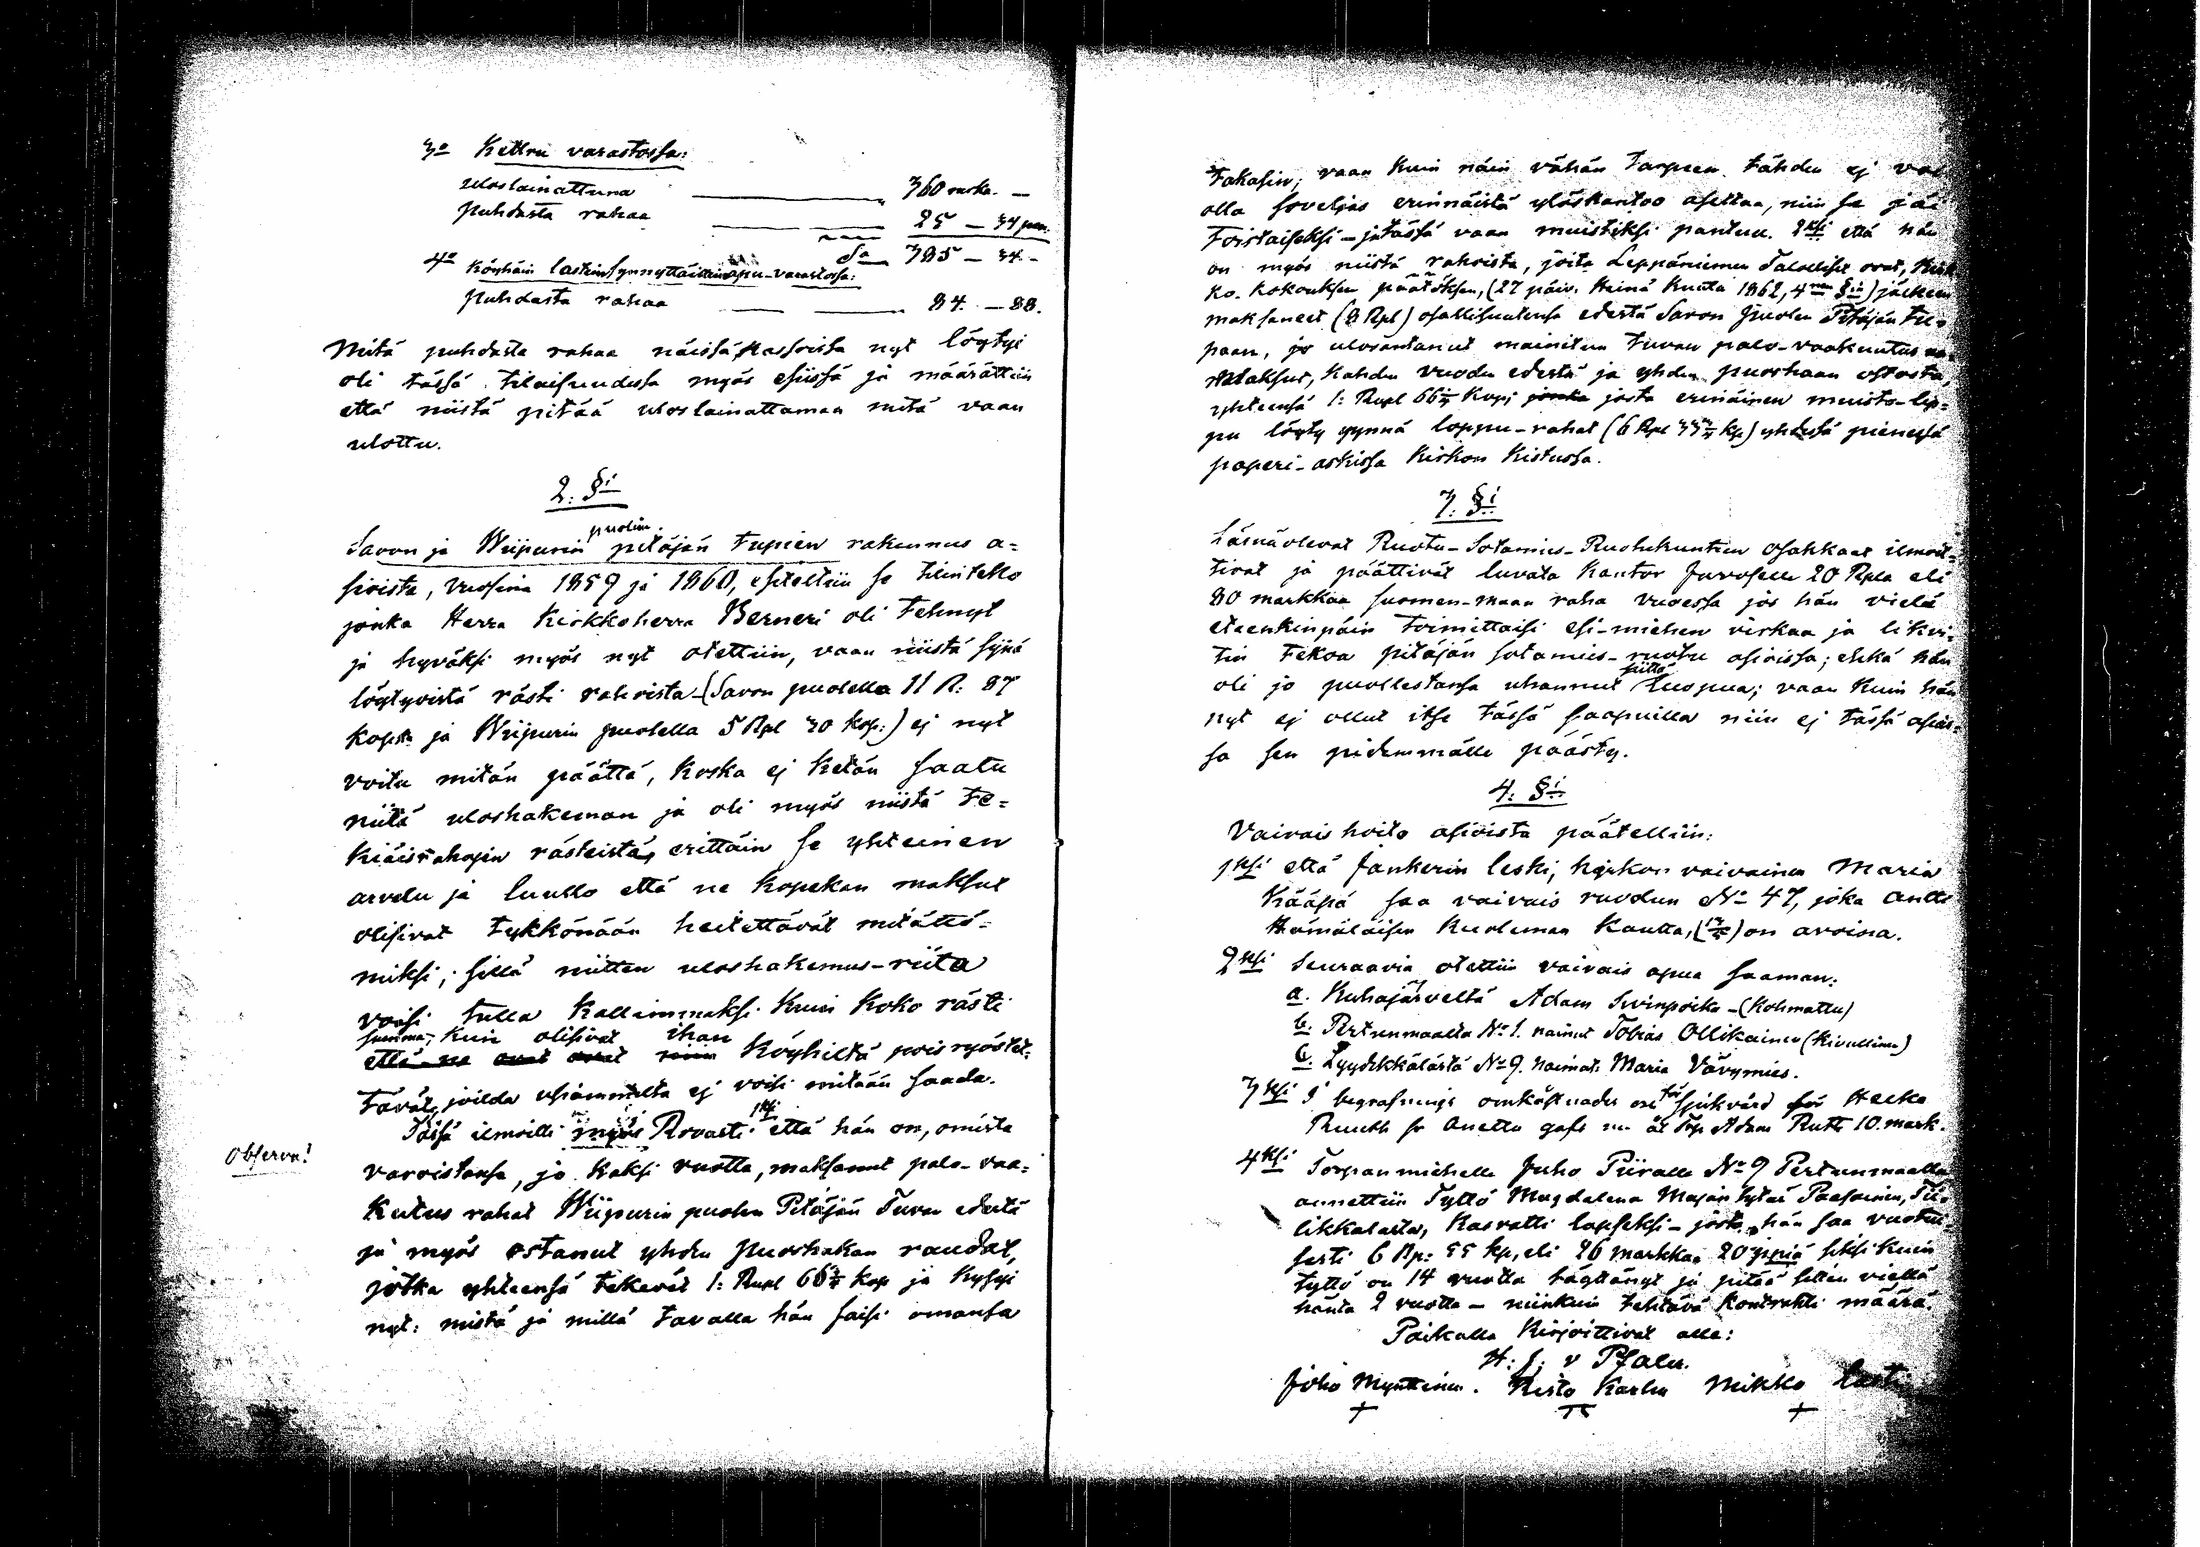 3o Kettru varastossa:
Uloslainattuna 360 marka. —
puhdasta rahaa 25 — 34 pen.
Sa 385 — 34 -
4o Köyhäin lastensynnyttäittenapu-varastossa:
puhdasta rahaa 84. — 88.
Mitä puhdasta rahaa näissä kassoissa nyt löytyi
oli tässä tilaisuudessa myös esiissä ja määrättiin
että niistä pitää uloslainattaman mitä vaan
ulottu.
2. §i
puolin.
Savon ja Wiipurin pitäjän tupien rakennus a=
sioista, vuosina 1859 ja 1860, esiteltiin se tilinteko
jonka Herra Kirkkoherra Berneri oli tehnyt
ja hyväksi myös nyt otettiin, vaan niistä siinä
löytyvistä rästi rahoista - (Savon puolella 11 R: 87
kop. ja Wiipurin puolella 5 Rpl 30 kop:) ej nyt
voitu mitän päättä, koska ej ketän saatu
niitä uloshakeman ja oli myös niistä te=
kiäisrahojen rästeistä, erittäin se yhteinen
arvelu ja luullo että ne kopekan maksut
olisivat tykkönään heitettävät mitättö=
miksi; sillä niitten uloshakemus-riita
voisi tulla kallimmaksi kuin koko rästi
summa; kuin olisivat ihan
että ne ovat niin köyhiltä pois ryöstet=
tävät, joilda usiammalta ej voisi mitään saada.
Tässä ilmoitti myös Rovasti 1ksi että hän on, omista
Observu! varoistansa, jo kaksi vuotta, maksanut palo-vaa=
kutus rahat Wiipurin puolen Pitäjän Tuvan edestä
ja myös ostanut yhden puoshakan raudat,
jotka yhteensä tekevät 1: Rupl 66 2/3 kop ja kysyi
nyt: mistä ja millä tavalla hän saisi omansa
takasin; vaan kuin näin vähän tarpeen tähden ej
olla soveljas erinnäistä ylöskantoo asettaa, niin se jäi
toistaiseksi - jätässä vaan muistiksi pantuu. 2ksi että hän
on myös niistä rahoista, joita Leppäniemen Talolliset ovat, Kirk
ko. kokouksen päätöksen, (27 päiv. Heinä Kuuta 1862, 4nen §in) jälkeen
maksaneet (8 Rpl) osallisuutensa edestä Savon puolen Pitäjän Tu=
paan, jo ulosantanut mainitun tuvan palo-vaakuutus
maksut, kahden vuoden edestä ja yhden puoshaan ostosta,
yhteensä 1: Rupl 66 2/3 kop; jonka josta erinäinen muisto-lip=
pu löyty ynnä loppu-rahat (6 Rpl 33 1/3 kp) yhdessä pienessä
paperi-askissa Kirkon Kistussa.
3. §i
Läsnäolevat Ruotu-Sotamies-Ruotukuntien osakkaat ilmoit=
tivat ja päättivät luvata Kantor Juvoselle 20 Rupla eli
80 markkaa suomen-maan raha vuodessa jos hän vielä
eteenkinpäin toimittaisi esi-miehen virkaa ja likvi=
tin tekoa pitäjän sotamies-ruotu asioissa; ehkä hän
siittä
oli jo puollestansa uhannut luopua; vaan kuin hän
nyt ej ollut itse tässä saapuilla niin ej tässä asias=
sa sen pidemmälle päästy.
4. §i
Vaivais hoito asioista päätelliin:
1ksi että Jankerin leski, kirkon vaivainen Maria
Kääpä saa vaivais ruodun No 47, joka Antti
Hämäläisen kuoleman kautta, on avoinna.
2ksi Seuraavia otettiin vaivais apua saaman:
a. Kuhajärveltä Adam Svinpoika - (Kohmattu)
b. Pertunmaalta No 1. naimat Tobias Ollikainen (Kivullinen)
C. Lyydikkälästä No 9. naimat. Maria Värymies.
3ksi I begrafnings omkåstnader och för sjukvård för Heika
Ruuth så Anetta gafs nu åt Torp Adam Ruth 10. mark.
4ksi Torpanmiehelle Juho Piiralle No 9 Pertunmaalla
annettiin Tyttö Magdalena Majan tytär Paasoinen,
likkalasta, kasvatti lapseksi - josta hän saa vuotui=
sesti 6 Rp: 55 kp, eli 26 markkaa 20 piä siksi kuin
tyttö on 14 vuotta täyttänyt ja pitää sitten viellä
häntä 2 vuotta - niinkuin tehtävä kontrahti määrä.
Paikalla kirjoittivat alle:
H: J: v Pfaler.
Juho Mynttinen. Risto Karhu Mikko